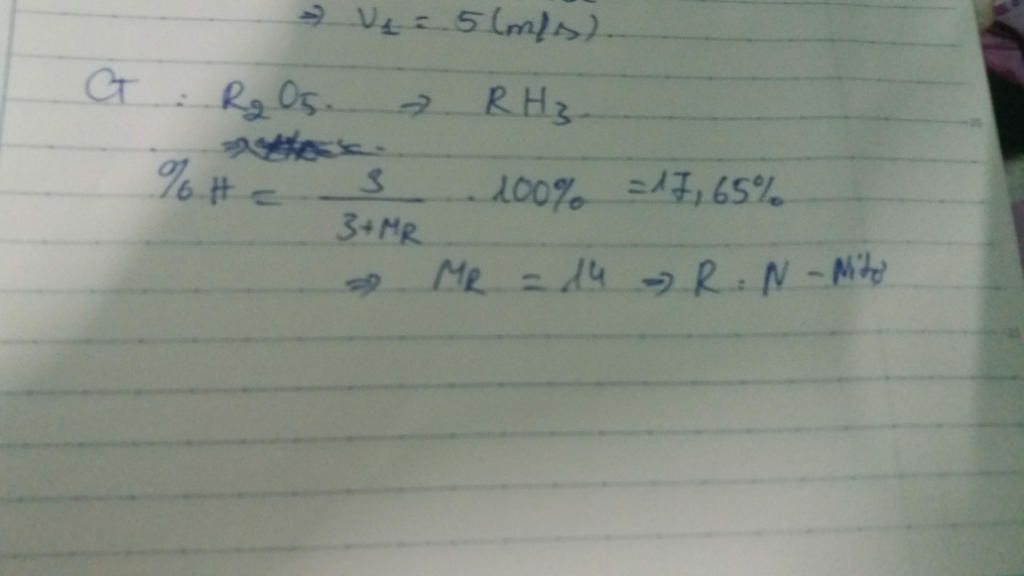 ⇒ V₁ = 5 (m/s).
CT : R₂O₅. → RH₃.
%H = 3 / (3+MR) . 100% = 17,65%
⇒ MR = 14 → R : N - Nitơ